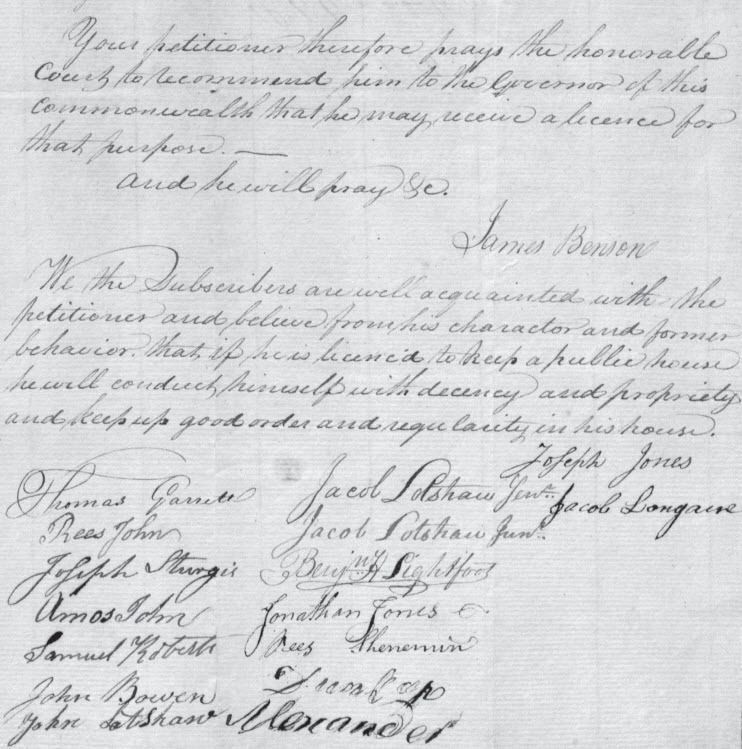 Your petitioner therefore prays the honorable
Court to recommend him to the Governor of this
Commonwealth that he may receive a licence for
that purpose. —
and he will pray &c.
James Benson
We the Subscribers are well acquainted with the
petitioner and believe from his charactor and former
behavior that if he is licenc'd to keep a public house
he will conduct himself with decency and propriety
and keep up good order and regularity in his house.
Joseph Jones
Thomas Garrett
Jacob Lotshaw Senr.
Jacob Longacre
Rees John
Jacob Lotshaw Junr.
Joseph Sturgis
Benjn. H Lightfoot
Amos John
Jonathan Jones
Samuel Roberts
Rees
John Bowen
John Lotshaw
Alexander